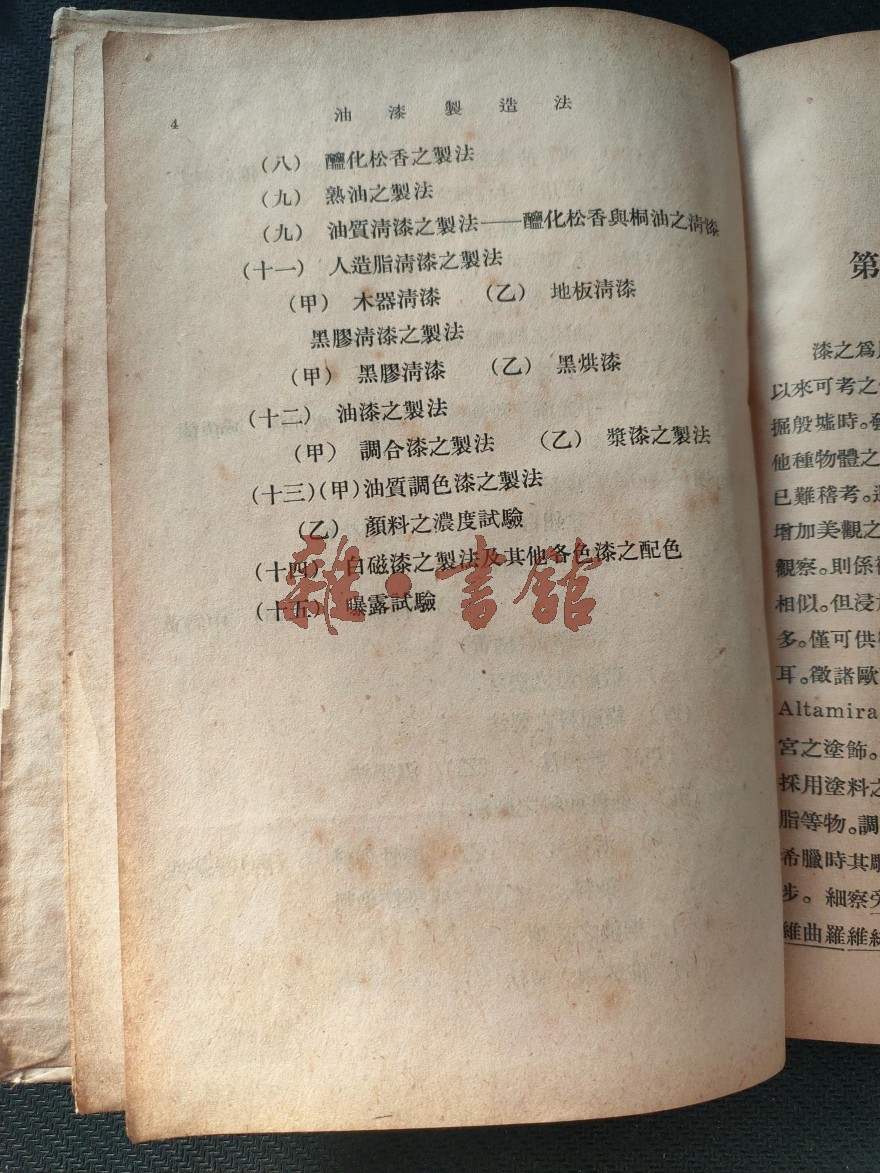 油漆製造法
4
(八) 醯化松香之製法
(九) 熟油之製法
(九) 油質清漆之製法——醯化松香與桐油之清漆
(十一) 人造脂清漆之製法
(甲) 木器清漆 (乙) 地板清漆
黑膠清漆之製法
(甲) 黑膠清漆 (乙) 黑烘漆
(十二) 油漆之製法
(甲) 調合漆之製法 (乙) 漿漆之製法
(十三)(甲)油質調色漆之製法
(乙) 顏料之濃度試驗
(十四) 白磁漆之製法及其他各色漆之配色
(十五) 曝露試驗
雜·書館
第
漆之爲
以來可考之
掘殷墟時。發
他種物體之
已難稽考。
增加美觀之
觀察。則係
相似。但浸
多。僅可供
耳。徵諸歐
Altamira
宮之塗飾。
採用塗料之
脂等物。調
希臘時其
步。細察
維曲羅維